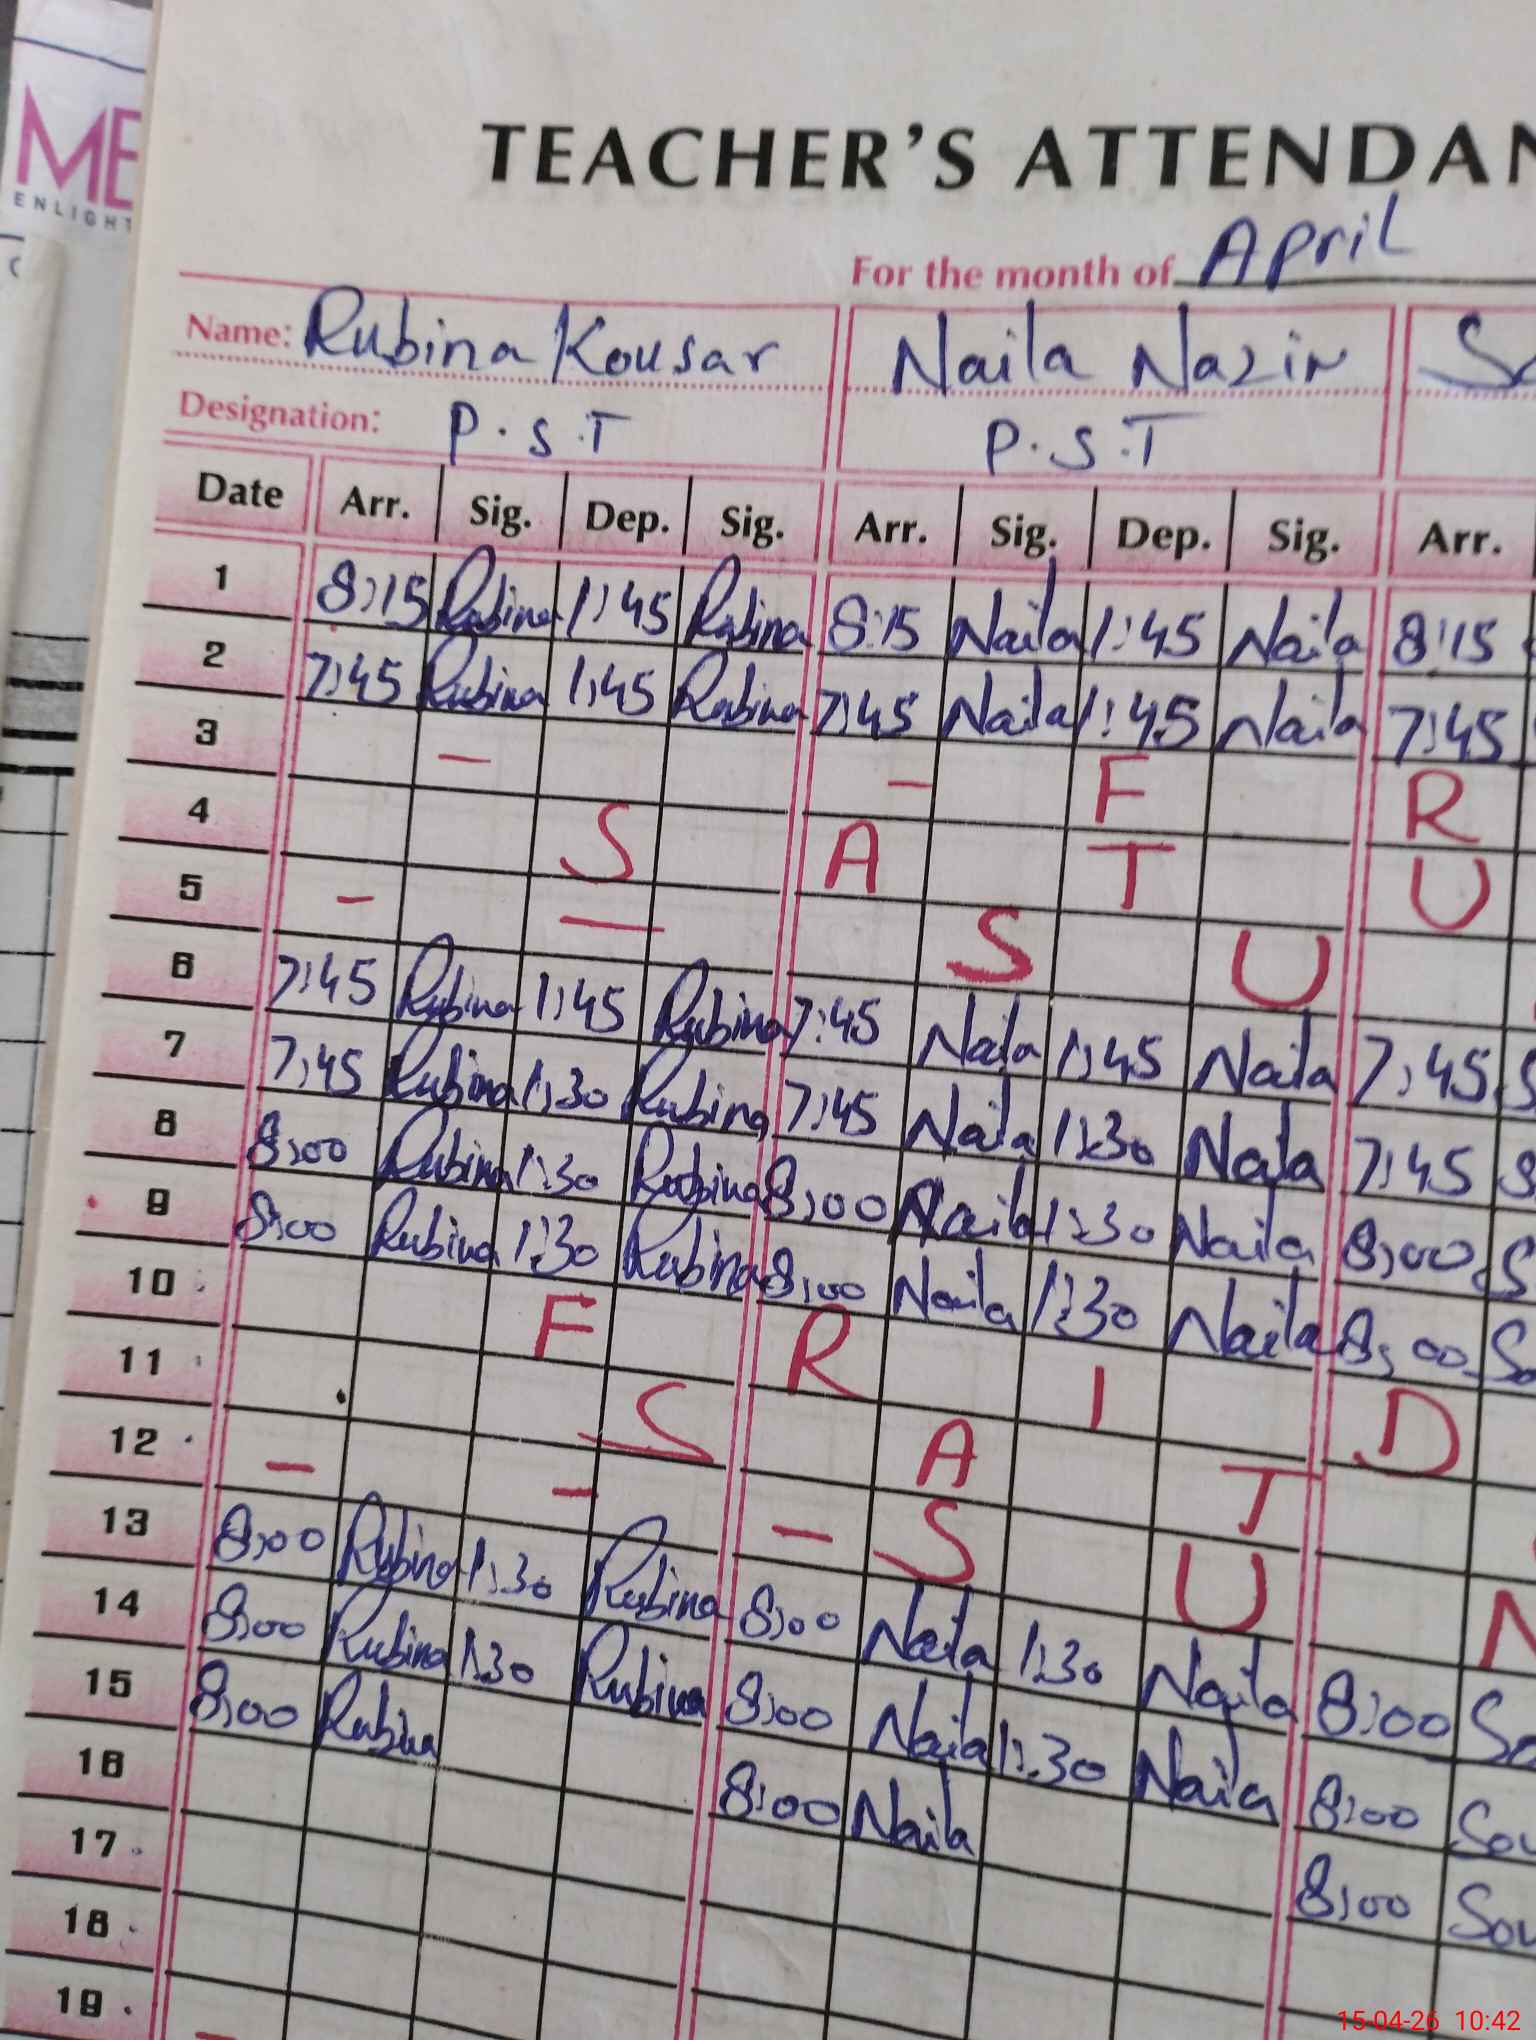 ME
ENLIGHT
TEACHER'S ATTENDAN
For the month of April
Name: Rubina Kousar Naila Nazir
Designation: P.S.T P.S.T
Date Arr. Sig. Dep. Sig. Arr. Sig. Dep. Sig. Arr.
1 8:15 Rubina 1:45 Rubina 8:15 Naila 1:45 Naila 8:15
2 7:45 Rubina 1:45 Rubina 7:45 Naila 1:45 Naila 7:45
3 - - F R
4 S A T U
5 - - S U
6 7:45 Rubina 1:45 Rubina 7:45 Naila 1:45 Naila 7:45 S
7 7:45 Rubina 1:30 Rubina 7:45 Naila 1:30 Naila 7:45 S
8 8:00 Rubina 1:30 Rubina 8:00 Naila 1:30 Naila 8:00 S
9 8:00 Rubina 1:30 Rubina 8:00 Naila 1:30 Naila 8:00 So
10 F R I D
11 S A T
12 - - - S U N
13 8:00 Rubina 1:30 Rubina 8:00 Naila 1:30 Naila 8:00 So
14 8:00 Rubina 1:30 Rubina 8:00 Naila 1:30 Naila 8:00 Sou
15 8:00 Rubina 8:00 Naila 8:00 Sou
16
17
18
19 -
15-04-26 10:42